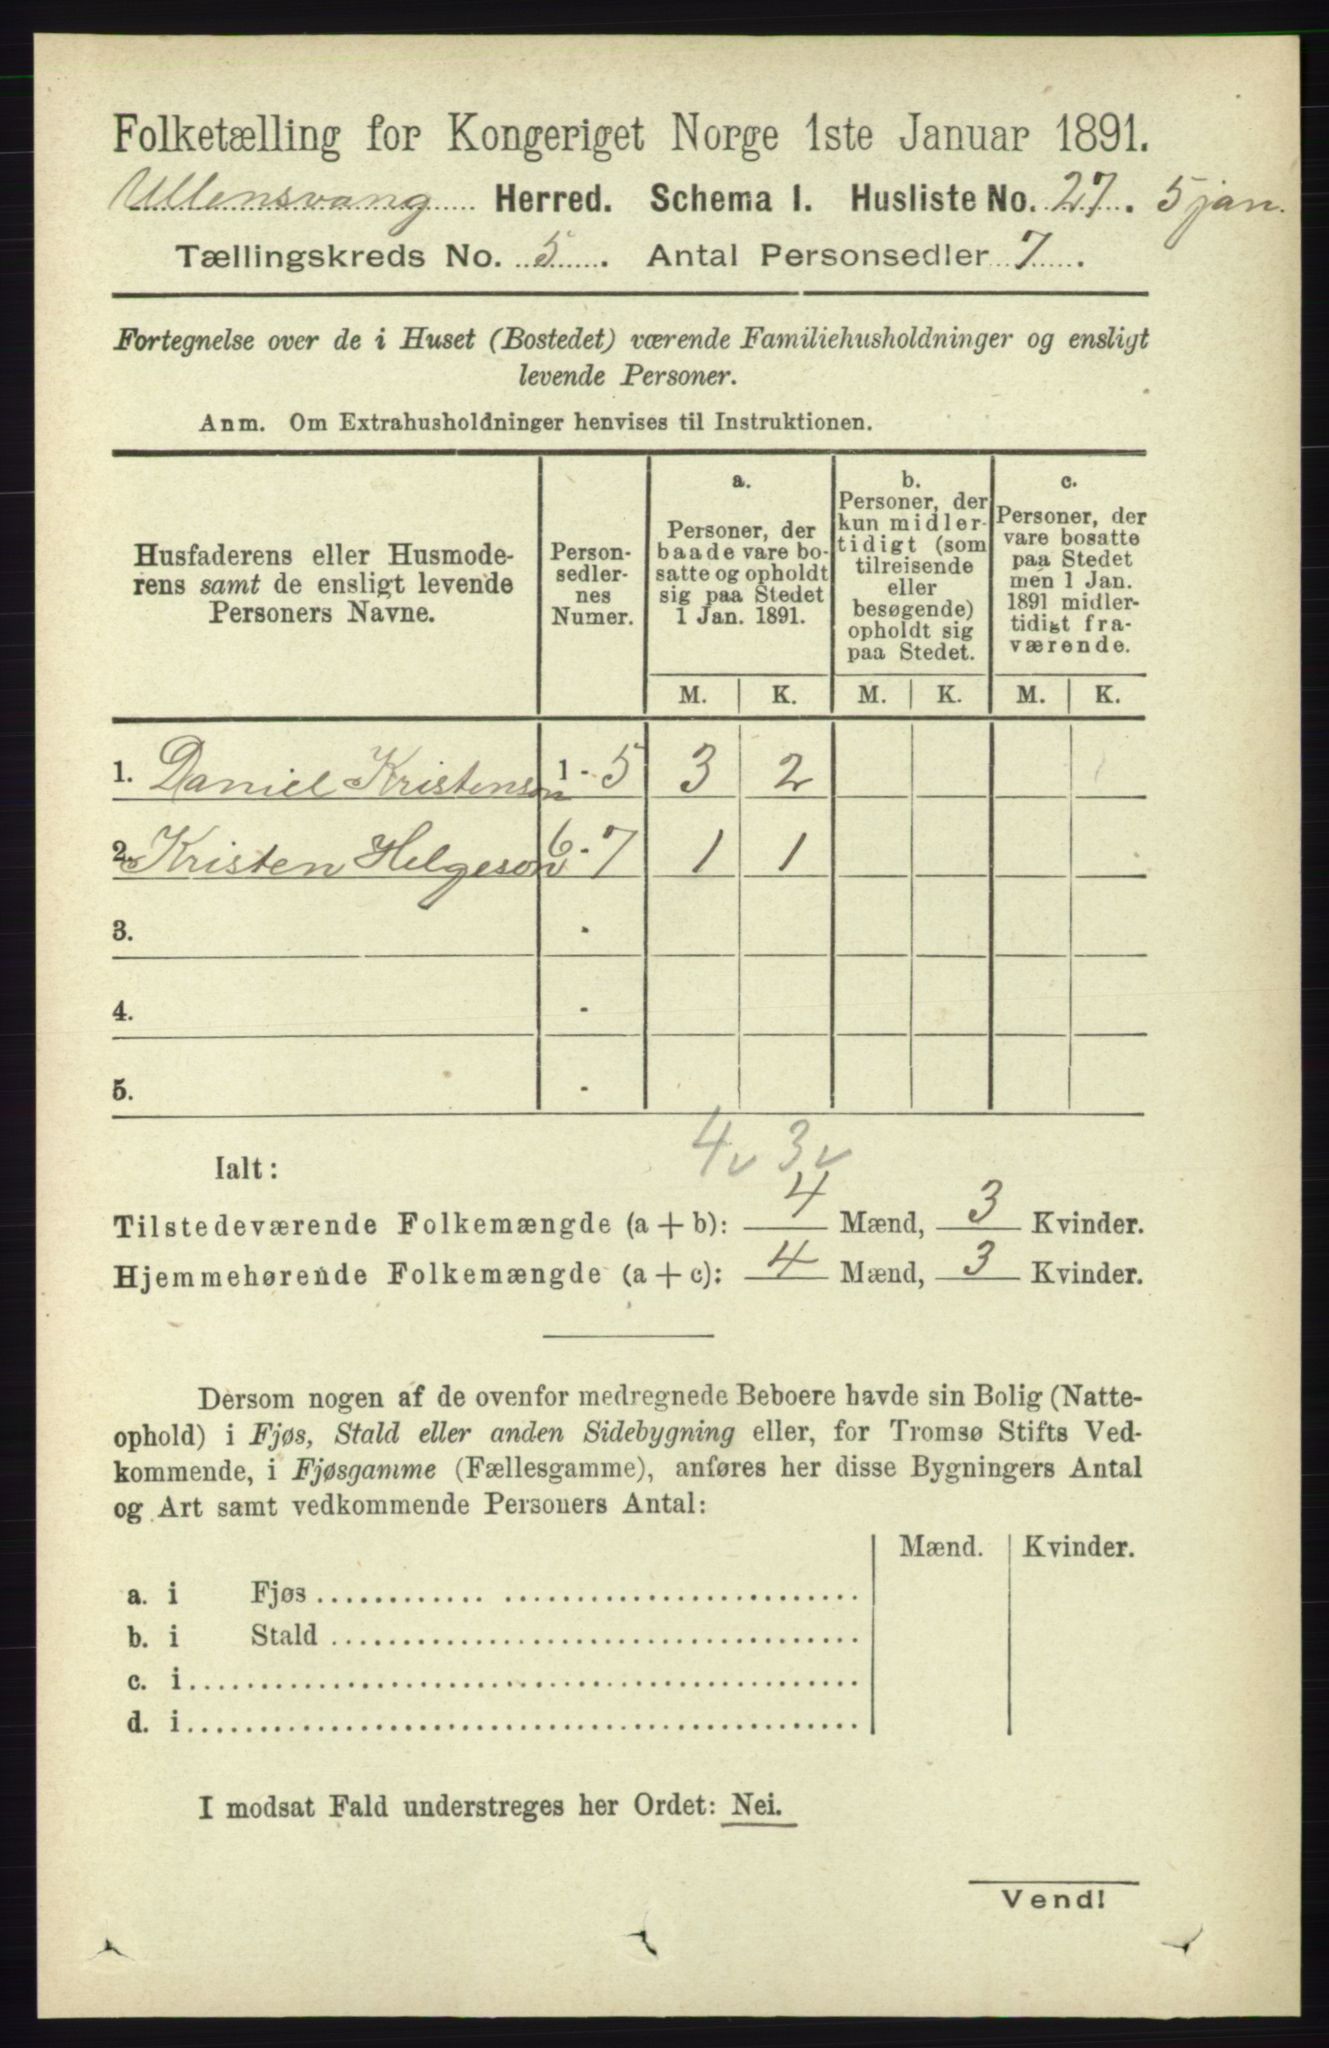 Folketælling for Kongeriget Norge 1ste Januar 1891.
Ullensvang Herred. Schema I. Husliste No. 27. 5 jan.
Tællingskreds No. 5. Antal Personsedler 7.
Fortegnelse over de i Huset (Bostedet) værende Familiehusholdninger og ensligt
levende Personer.
Anm. Om Extrahusholdninger henvises til Instruktionen.
Husfaderens eller Husmode-
rens samt de ensligt levende
Personers Navne.
Person-
sedler-
nes
Numer.
a.
Personer, der
baade vare bo-
satte og opholdt
sig paa Stedet
1 Jan. 1891.
b.
Personer, der
kun midler-
tidigt (som
tilreisende
eller
besøgende)
opholdt sig
paa Stedet.
c.
Personer, der
vare bosatte
paa Stedet
men 1 Jan.
1891 midler-
tidigt fra-
værende.
M. K. M. K. M. K.
1. Daniel Kristenson 1 - 5 3 2
2. Kristen Helgeson 6 - 7 1 1
3. -
4. -
5. -
4v 3v
Ialt:
Tilstedeværende Folkemængde (a + b): 4 Mænd, 3 Kvinder.
Hjemmehørende Folkemængde (a + c): 4 Mænd, 3 Kvinder.
Dersom nogen af de ovenfor medregnede Beboere havde sin Bolig (Natte-
ophold) i Fjøs, Stald eller anden Sidebygning eller, for Tromsø Stifts Ved-
kommende, i Fjøsgamme (Fællesgamme), anføres her disse Bygningers Antal
og Art samt vedkommende Personers Antal:
Mænd. Kvinder.
a. i Fjøs
b. i Stald
c. i
d. i
I modsat Fald understreges her Ordet: Nei.
Vend!